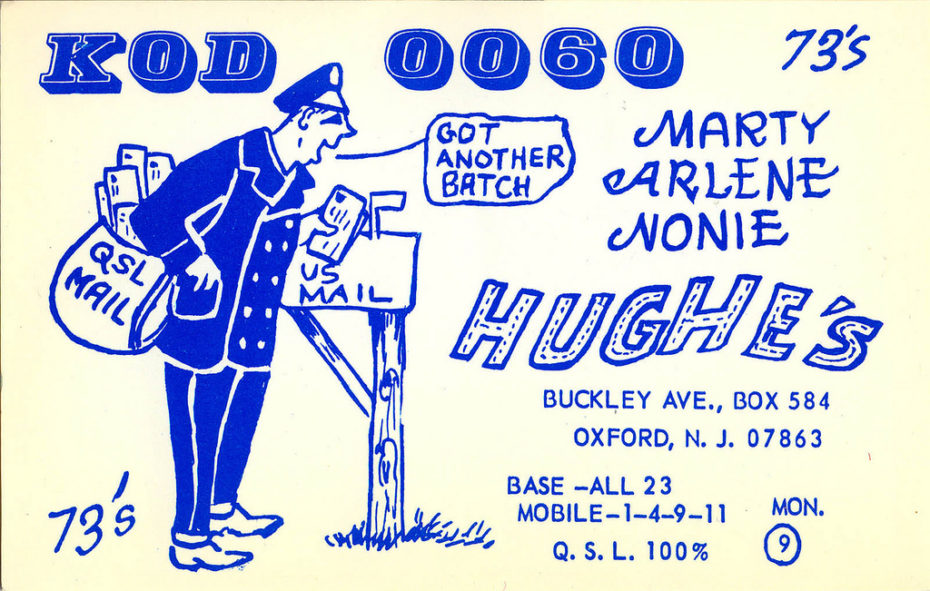 KOD 0060
73's
GOT
ANOTHER
BATCH
MARTY
ARLENE
NONIE
HUGHE'S
QSL
MAIL
US
MAIL
BUCKLEY AVE., BOX 584
OXFORD, N. J. 07863
BASE -ALL 23
MOBILE-1-4-9-11
Q. S. L. 100%
MON.
9
73's